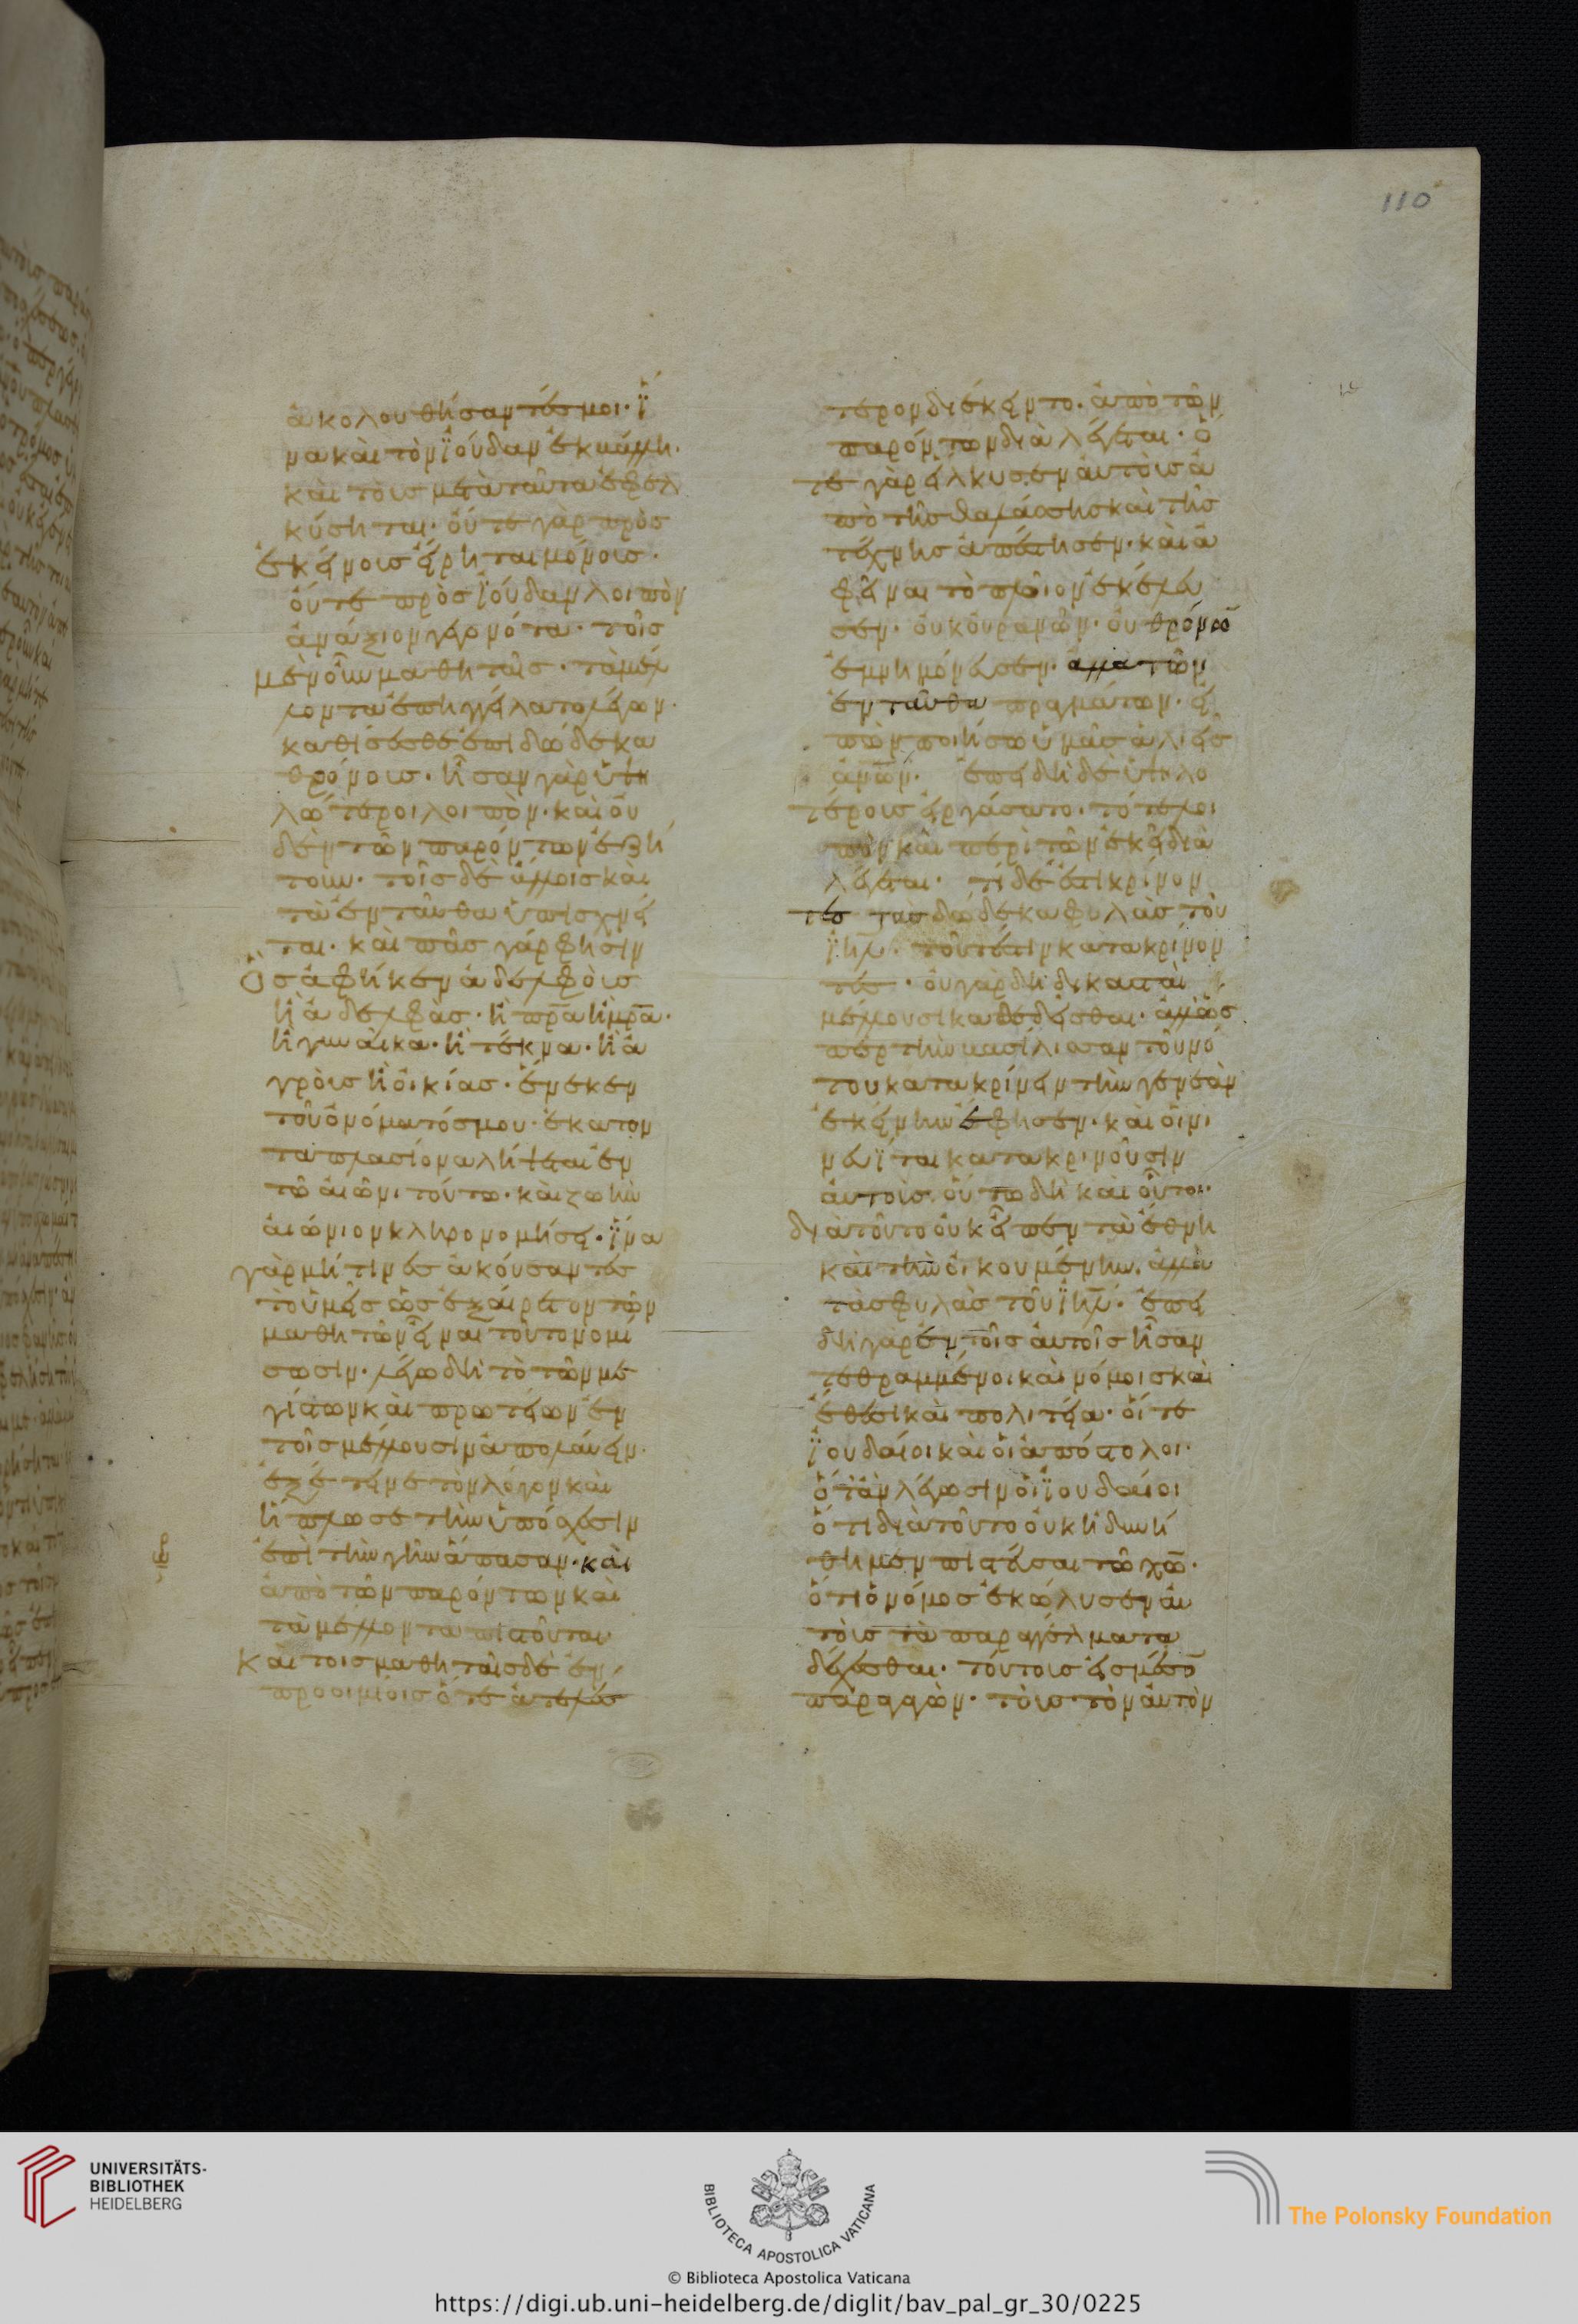 110
ἀκολουθήσαντές μοι· ἵ
να καὶ τὸν ἰούδαν ἐκβάλλη·
καὶ τοὺς μετὰ ταῦτα ἐφελ
κύσηται· οὔτε γὰρ πρὸς
ἐκείνους εἴρηται μόνους·
οὔτε πρὸς ἰούδαν λοιπὸν
ἀνάξιον γεγονότα· τοῖς
μὲν οὖν μαθηταῖς· τὰ μέλ
λοντα ἐπηγγείλατο λέγων·
καθίσεσθε ἐπὶ δώδεκα
θρόνους· ἦσαν γὰρ ὑψη
λότεροι λοιπὸν· καὶ οὐ
δὲν τῶν παρόντων ἐζή
τουν· τοῖς δὲ ἄλλοις καὶ
τὰ ἐνταῦθα ὑπισχνεῖ
ται· καὶ πᾶς γάρ φησιν
ὃς ἀφῆκεν ἀδελφοὺς
ἢ ἀδελφὰς· ἢ πρα ἢ μρα·
ἢ γυναῖκα· ἢ τέκνα· ἢ ἀ
γροὺς ἢ οἰκίας· ἕνεκεν
τοῦ ὀνόματός μου· ἑκατον
ταπλασίονα λήψεται ἐν
τῶ αἰῶνι τούτω· καὶ ζωὴν
αἰώνιον κληρονομήσει· ἵνα
γὰρ μή τινες ἀκούσαντες
τὸ ὑμεῖς ὡς ἐξαίρετον τῶν
μαθητῶν εἶναι τοῦτο νομί
σωσιν· λέγω δὴ τὸ τῶν με
γίστων καὶ πρωτείων ἐν
τοῖς μέλλουσιν ἀπολαύειν·
ἐξέτεινε τὸν λόγον καὶ
ἥπλωσε τὴν ὑπόσχεσιν
ἐπὶ τὴν γῆν ἅπασαν· καὶ
ἀπὸ τῶν παρόντων καὶ
τὰ μέλλοντα πιστοῦται·
καὶ τοῖς μαθηταῖς δὲ ἐν
προοιμίοις ὅτε ἀτελέσ
τερον διέκειντο· ἀπὸ τῶν
παρόντων διαλέγεται· ὅ
τε γὰρ εἵλκυσεν αὐτοὺς ἀ
πὸ τῆς θαλάσσης καὶ τῆς
τέχνης ἀπέστησεν· καὶ ἀ
φεῖναι τὸ πλοῖον ἐκέλευ
σεν· οὐκ οὐρανῶν· οὐ θρόνω
ἐμνημόνευσεν· ἀλλὰ τῶν
ἐνταῦθα πραγμάτων· εἰ
πὼν ποιήσω ὑμᾶς ἁλιεῖς
ἀνων· ἐπειδὴ δὲ ὑψηλο
τέρους εἰργάσατο· τότε λοι
πὸν καὶ περὶ τῶν ἐκεῖ δια
λέγεται· τί δέ ἐστι κρίνον
τες τὰς δώδεκα φυλὰς τοῦ
ιηλ· τουτέστιν κατακρίνον
τες· οὐ γὰρ δὴ δικασταὶ
μέλλουσι καθεδεῖσθαι· ἀλλ' ὥσ
περ τὴν βασίλισσαν τοῦ νό
του κατακρίνειν τὴν γενεὰν
ἐκείνην ἔφησεν· καὶ οἱ νι
νευῖται κατακρινοῦσιν
αὐτοὺς οὕτω δὴ καὶ οὗτοι·
διὰ τοῦτο οὐκ εἶπεν τὰ ἔθνη
καὶ τὴν οἰκουμένην· ἀλλὰ
τὰς φυλὰς τοῦ ιηλ· ἐπει
δὴ γὰρ ἐν τοῖς αὐτοῖς ἦσαν
τεθραμμένοι καὶ νόμοις καὶ
ἔθεσι καὶ πολιτεία· οἵ τε
ἰουδαῖοι καὶ οἱ ἀπόστολοι·
ὅταν λέγωσιν οἱ ἰουδαῖοι
ὅτι διὰ τοῦτο οὐκ ἠδυνή
θημεν πιστεῦσαι τῶ χω·
ὅτι ὁ νόμος ἐκώλυσεν αὐ
τοὺς τὰ παραγγέλματα
δέχεσθαι· τούτους εἰς μέσο
παραγαγὼν· τοὺς τὸν αὐτὸν
UNIVERSITÄTS-
BIBLIOTHEK
HEIDELBERG
BIBLIOTECA APOSTOLICA VATICANA
The Polonsky Foundation
© Biblioteca Apostolica Vaticana
https://digi.ub.uni-heidelberg.de/diglit/bav_pal_gr_30/0225